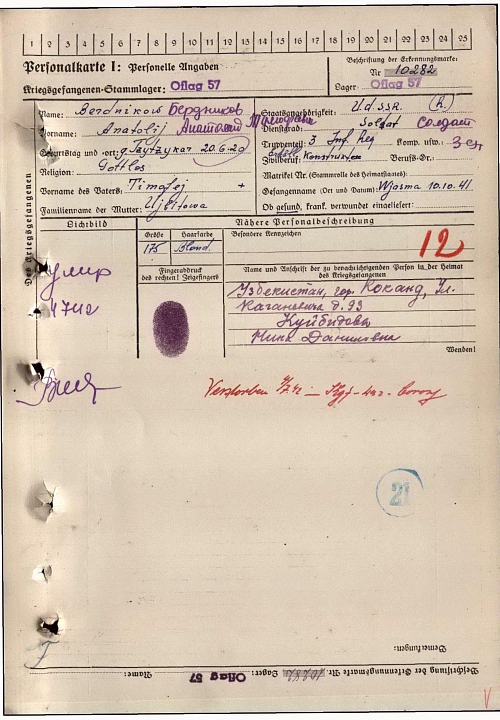 1 2 3 4 5 6 7 8 9 10 11 12 13 14 15 16 17 18 19 20 21 22 23 24 25
Personalkarte I: Personelle Angaben
Kriegsgefangenen-Stammlager: Oflag 57
Beschriftung der Erkennungsmarke:
Nr. 10282
Lager: Oflag 57
Des Kriegsgefangenen
Name: Berdnikow Бердников
Vorname: Anatolij Анатолий Тимофеевич
Geburtstag und -ort: 20.6.20
Religion: Gottlos
Vorname des Vaters: Timofej +
Familienname der Mutter:
Staatsangehörigkeit: U.d.SSR. (R.)
Dienstgrad: Soldat солдат
Truppenteil: 3 Inf. Reg Komp. usw.:
Zivilberuf: Konstrukteur Berufs-Gr.:
Matrikel Nr. (Stammrolle des Heimatstaates):
Gefangennahme (Ort und Datum): Wjasma 10.10.41
Ob gesund, krank, verwundet eingeliefert:
Lichtbild
Nähere Personalbeschreibung
Größe Haarfarbe Besondere Kennzeichen
175 Blond
12
Fingerabdruck
des rechten! Zeigefingers
Name und Anschrift der zu benachrichtigenden Person in der Heimat
des Kriegsgefangenen
Узбекистан, гор. Коканд, Ул.
Кагановича д. 93
Нина Даниловна
Wenden!
умер
Verstorben
21
Bemerkungen:
Beschriftung der Erkennungsmarke Nr. 10282 Lager: Oflag 57 Name: